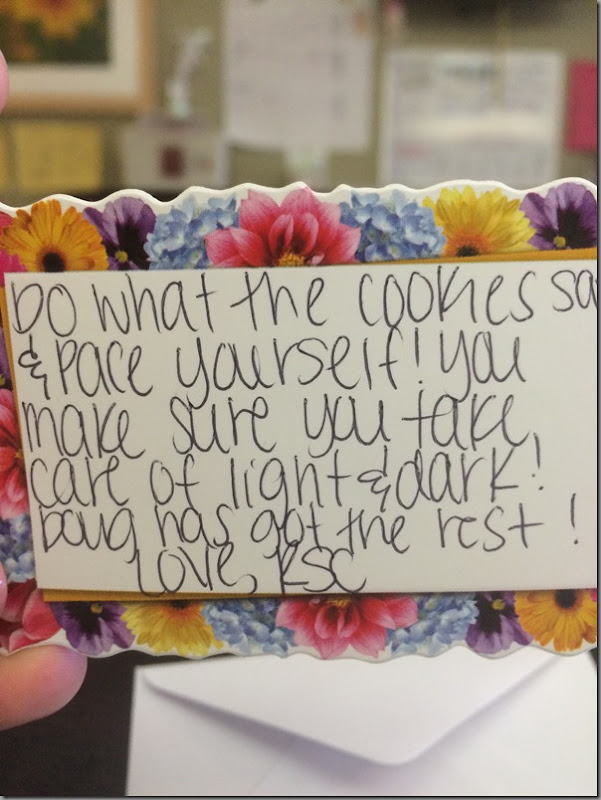 Do what the cookies sa
& pace yourself! you
make sure you take
care of light & dark!
Doug has got the rest!
Love, KSC